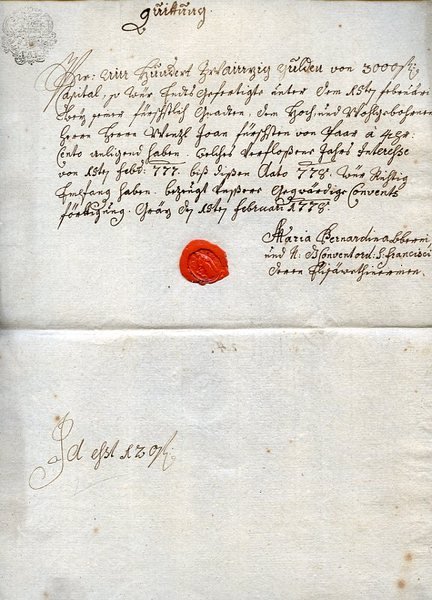 Quitung.
Per: Ein Hundert Zwainzig Gulden von 3000 fl:
Capital, so wür Endts Gefertigte unter dem 15ten february
bey seiner fürstlich Gnaden, dem Hoch und Wohlgebohrnen
Herrn Herrn Wenzl Joan fürsten von Paar à 4 pr:
Cento anligend haben. welches verflossenes Jahrs Interesse
von 15ten febr: 777. biß dessen dato 778. wür Richtig
Empfang haben. bezeugt unsere Gegenwärdige Convents
förtigung. Gräz den 15ten februari 1778.
Maria Bernardina Oberin
und N: Convent ord: S: Francisci
deren Elisabethinerinen.
Id est 120 fl: